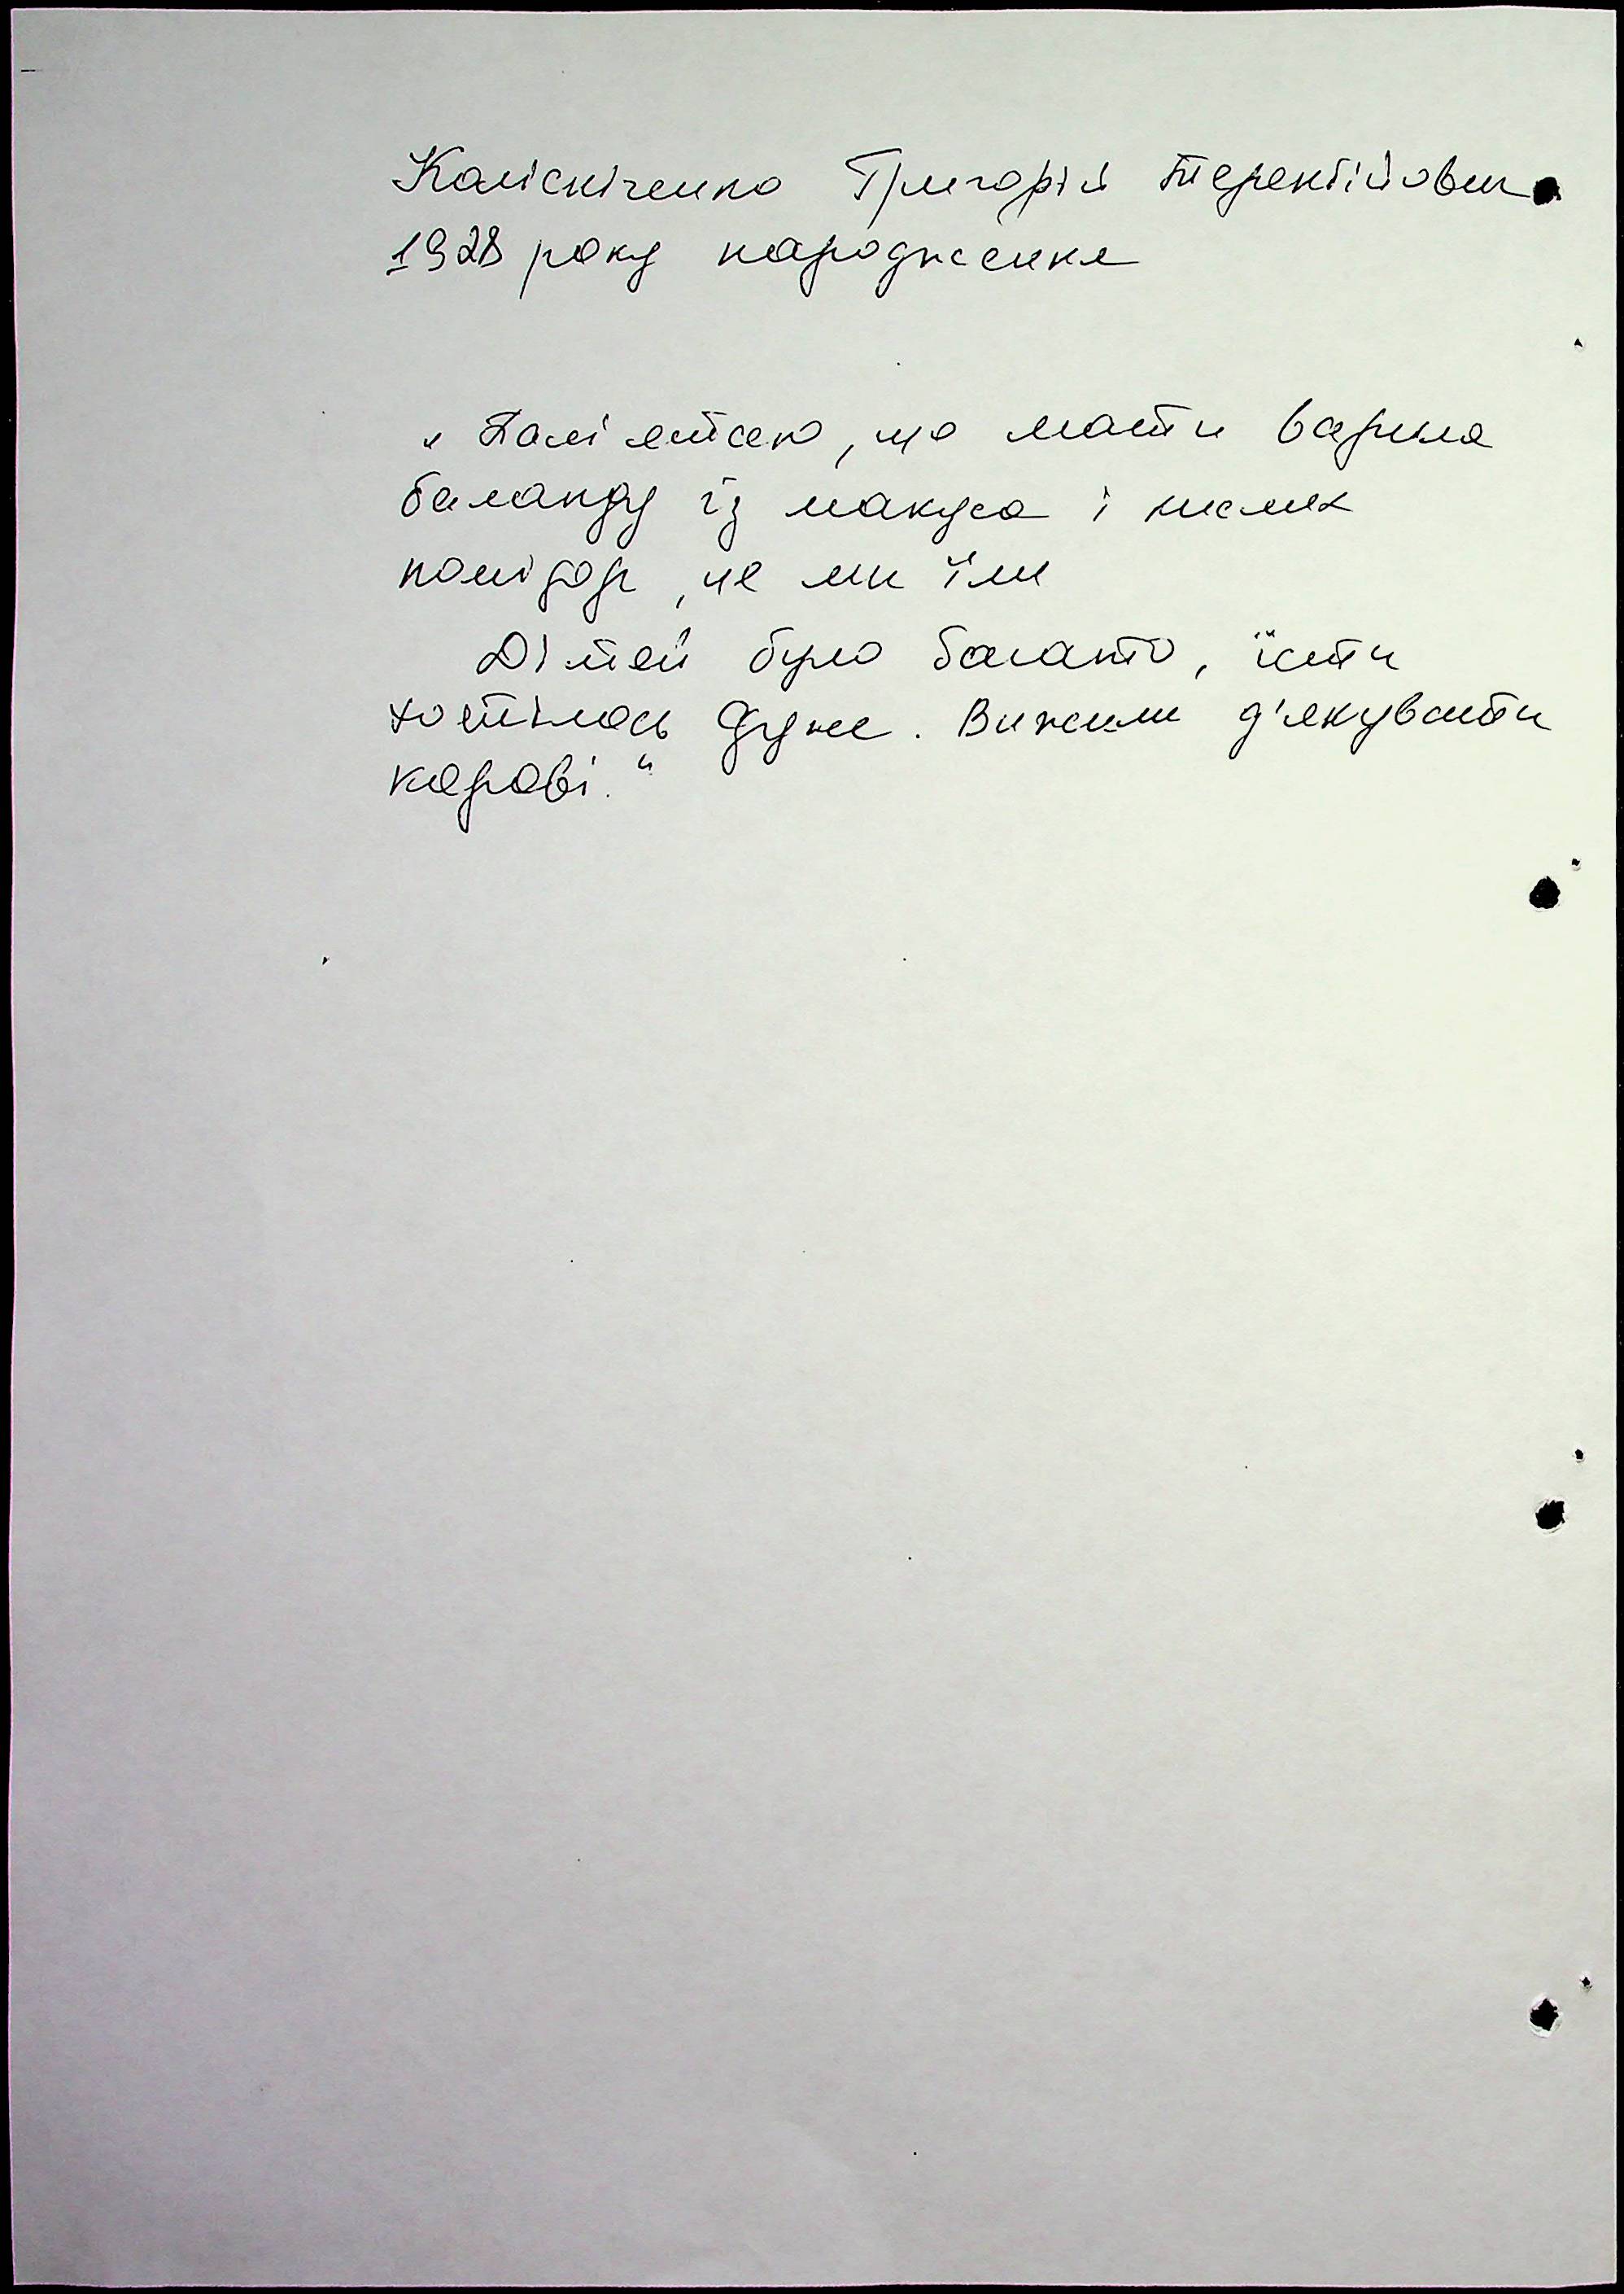 Григорій Терентійович
1928 року народження
„Памʼятаю, що мати варила
баланду із макуха і кислих
помідор, це ми їли
Дітей було багато, їсти
хотілось дуже. Вижили дʼякувати
корові."